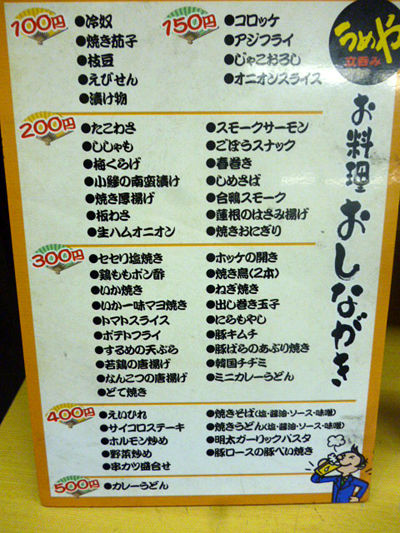 うめや
立呑み
お料理 おしながき
100円
●冷奴
●焼き茄子
●枝豆
●えびせん
●漬け物
150円
●コロッケ
●アジフライ
●じゃこおろし
●オニオンスライス
200円
●たこわさ
●ししゃも
●梅くらげ
●小鯵の南蛮漬け
●焼き厚揚げ
●板わさ
●生ハムオニオン
●スモークサーモン
●ごぼうスナック
●春巻き
●しめさば
●合鴨スモーク
●蓮根のはさみ揚げ
●焼きおにぎり
300円
●セセリ塩焼き
●鶏ももポン酢
●いか焼き
●いか一味マヨ焼き
●トマトスライス
●ポテトフライ
●するめの天ぷら
●若鶏の唐揚げ
●なんこつの唐揚げ
●どて焼き
●ホッケの開き
●焼き鳥(2本)
●ねぎ焼き
●出し巻き玉子
●にらもやし
●豚キムチ
●豚ばらのあぶり焼き
●韓国チヂミ
●ミニカレーうどん
400円
●えいひれ
●サイコロステーキ
●ホルモン炒め
●野菜炒め
●串カツ盛合せ
●焼きそば(塩・醤油・ソース・味噌)
●焼きうどん(塩・醤油・ソース・味噌)
●明太ガーリックパスタ
●豚ロースの豚ぺい焼き
500円
●カレーうどん